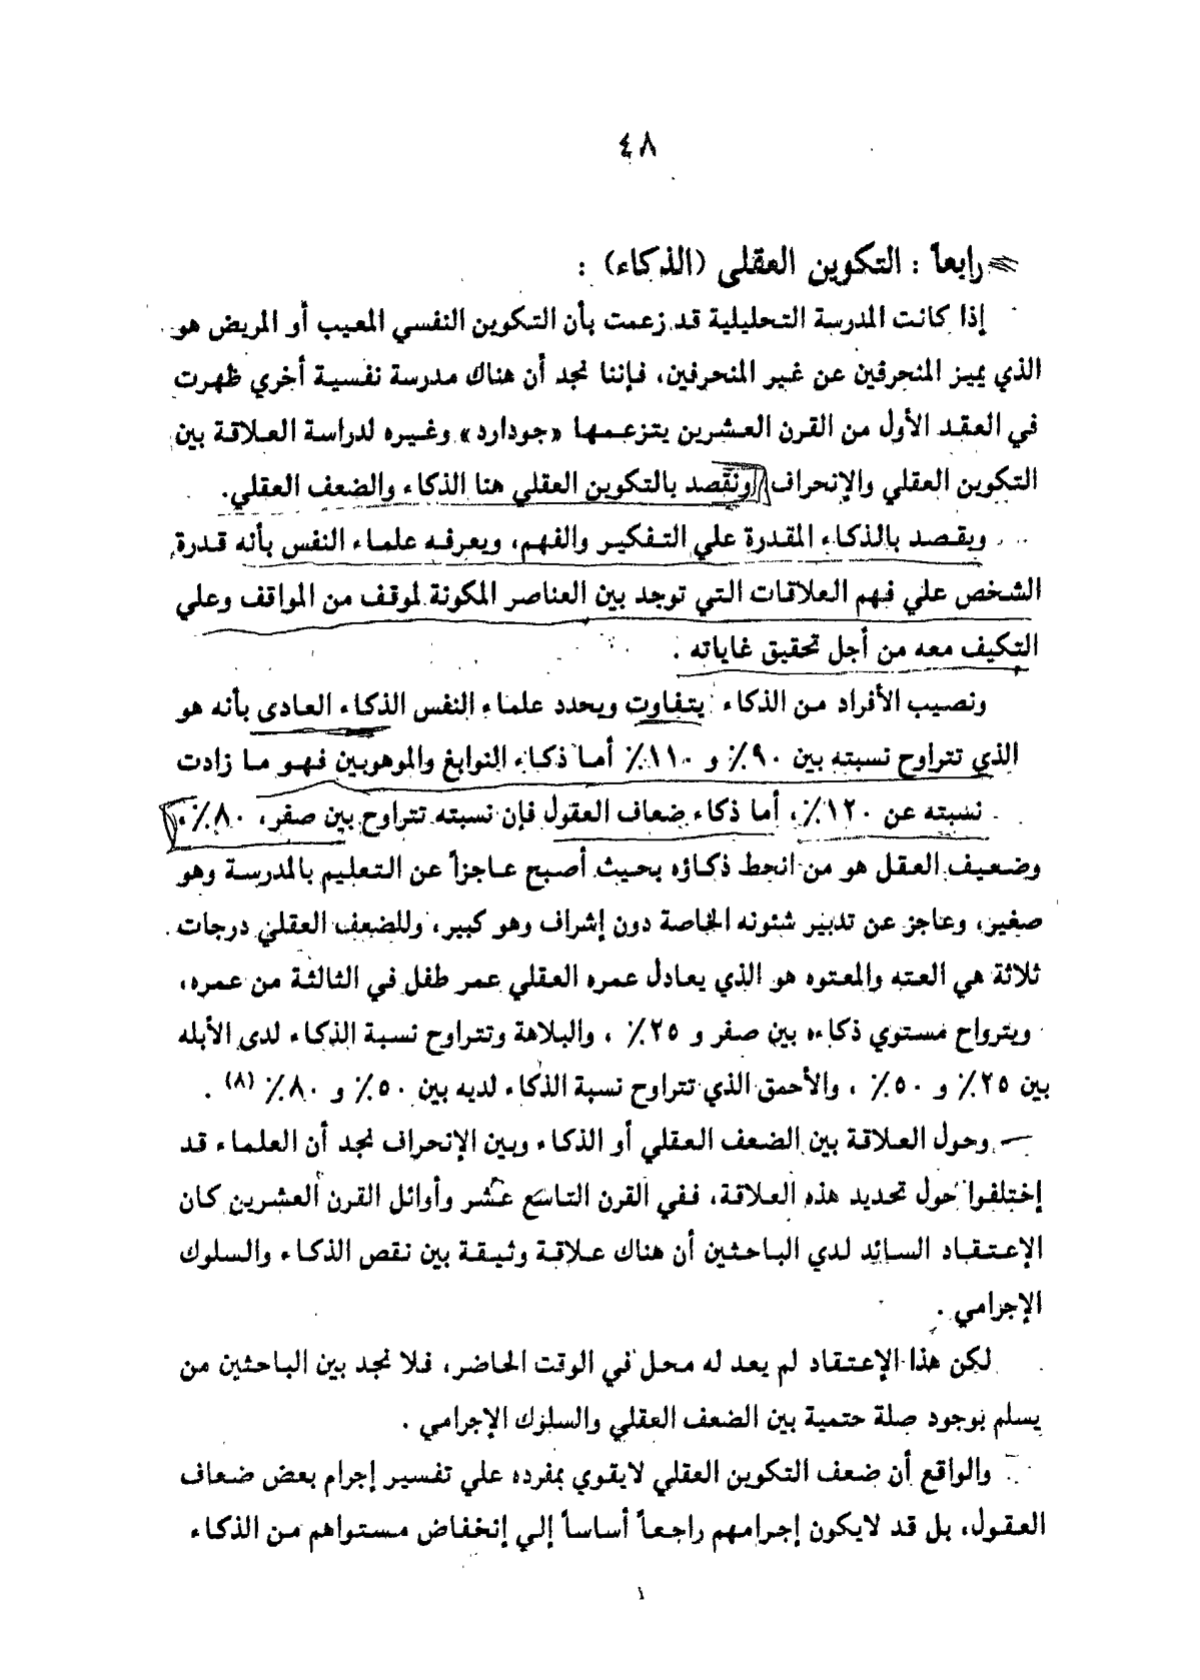 ٤٨
رابعاً : التكوين العقلى (الذكاء) :
إذا كانت المدرسة التحليلية قد زعمت بأن التكوين النفسي المعيب أو المريض هو
الذي يميز المنحرفين عن غير المنحرفين، فإننا نجد أن هناك مدرسة نفسية أخري ظهرت
في العقد الأول من القرن العشرين يتزعمها «جودارد» وغيره لدراسة العلاقة بين
التكوين العقلي والإنحراف ونقصد بالتكوين العقلي هنا الذكاء والضعف العقلي.
ويقصد بالذكاء المقدرة علي التفكير والفهم، ويعرفه علماء النفس بأنه قدرة
الشخص علي فهم العلاقات التي توجد بين العناصر المكونة لموقف من المواقف وعلي
التكيف معه من أجل تحقيق غاياته .
ونصيب الأفراد من الذكاء يتفاوت ويحدد علماء النفس الذكاء العادى بأنه هو
الذي تتراوح نسبته بين ٩٠٪ و ١١٠٪ أما ذكاء النوابغ والموهوبين فهو ما زادت
نسبته عن ١٢٠٪، أما ذكاء ضعاف العقول فإن نسبته تتراوح بين صفر، ٨٠٪،
وضعيف العقل هو من انحط ذكاؤه بحيث أصبح عاجزاً عن التعليم بالمدرسة وهو
صغير، وعاجز عن تدبير شئونه الخاصة دون إشراف وهو كبير، وللضعف العقلي درجات
ثلاثة هي العته والمعتوه هو الذي يعادل عمره العقلي عمر طفل في الثالثة من عمره،
ويترواح مستوي ذكاءه بين صفر و ٢٥٪ ، والبلاهة وتتراوح نسبة الذكاء لدى الأبله
بين ٢٥٪ و ٥٠٪ ، والأحمق الذي تتراوح نسبة الذكاء لديه بين ٥٠٪ و ٨٠٪ (٨) .
وحول العلاقة بين الضعف العقلي أو الذكاء وبين الإنحراف نجد أن العلماء قد
إختلفوا حول تحديد هذه العلاقة، ففي القرن التاسع عشر وأوائل القرن العشرين كان
الإعتقاد السائد لدي الباحثين أن هناك علاقة وثيقة بين نقص الذكاء والسلوك
الإجرامي .
لكن هذا الإعتقاد لم يعد له محل في الوقت الحاضر، فلا نجد بين الباحثين من
يسلم بوجود صلة حتمية بين الضعف العقلي والسلوك الإجرامي .
والواقع أن ضعف التكوين العقلي لايقوي بمفرده علي تفسير إجرام بعض ضعاف
العقول، بل قد لايكون إجرامهم راجعاً أساساً إلي إنخفاض مستواهم من الذكاء
١